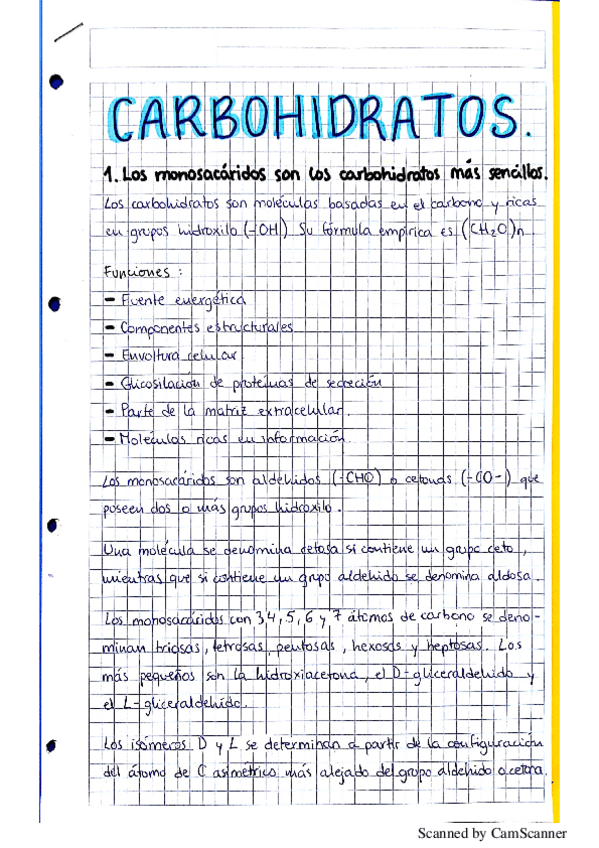 CARBOHIDRATOS.
1. Los monosacáridos son los carbohidratos más sencillos.
Los carbohidratos son moléculas basadas en el carbono y ricas
en grupos hidroxilo (-OH). Su fórmula empírica es (CH₂O)n
Funciones :
- Fuente energética
- Componentes estructurales
- Envoltura celular
- Glicosilación de proteínas de secreción
- Parte de la matriz extracelular.
- Moléculas ricas en información.
Los monosacáridos son aldehidos (-CHO) o cetonas (-CO-) que
poseen dos o más grupos hidroxilo.
Una molécula se denomina cetosa si contiene un grupo ceto,
mientras que si contiene un grupo aldehido se denomina aldosa.
Los monosacáridos con 3,4,5,6 y 7 átomos de carbono se deno-
minan triosas, tetrosas, pentosas, hexosas y heptosas. Los
más pequeños son la hidroxiacetona, el D-gliceraldehido y
el L-gliceraldehido.
Los isómeros D y L se determinan a partir de la configuración
del átomo de C asimétrico más alejado del grupo aldehido o cetona.
Scanned by CamScanner